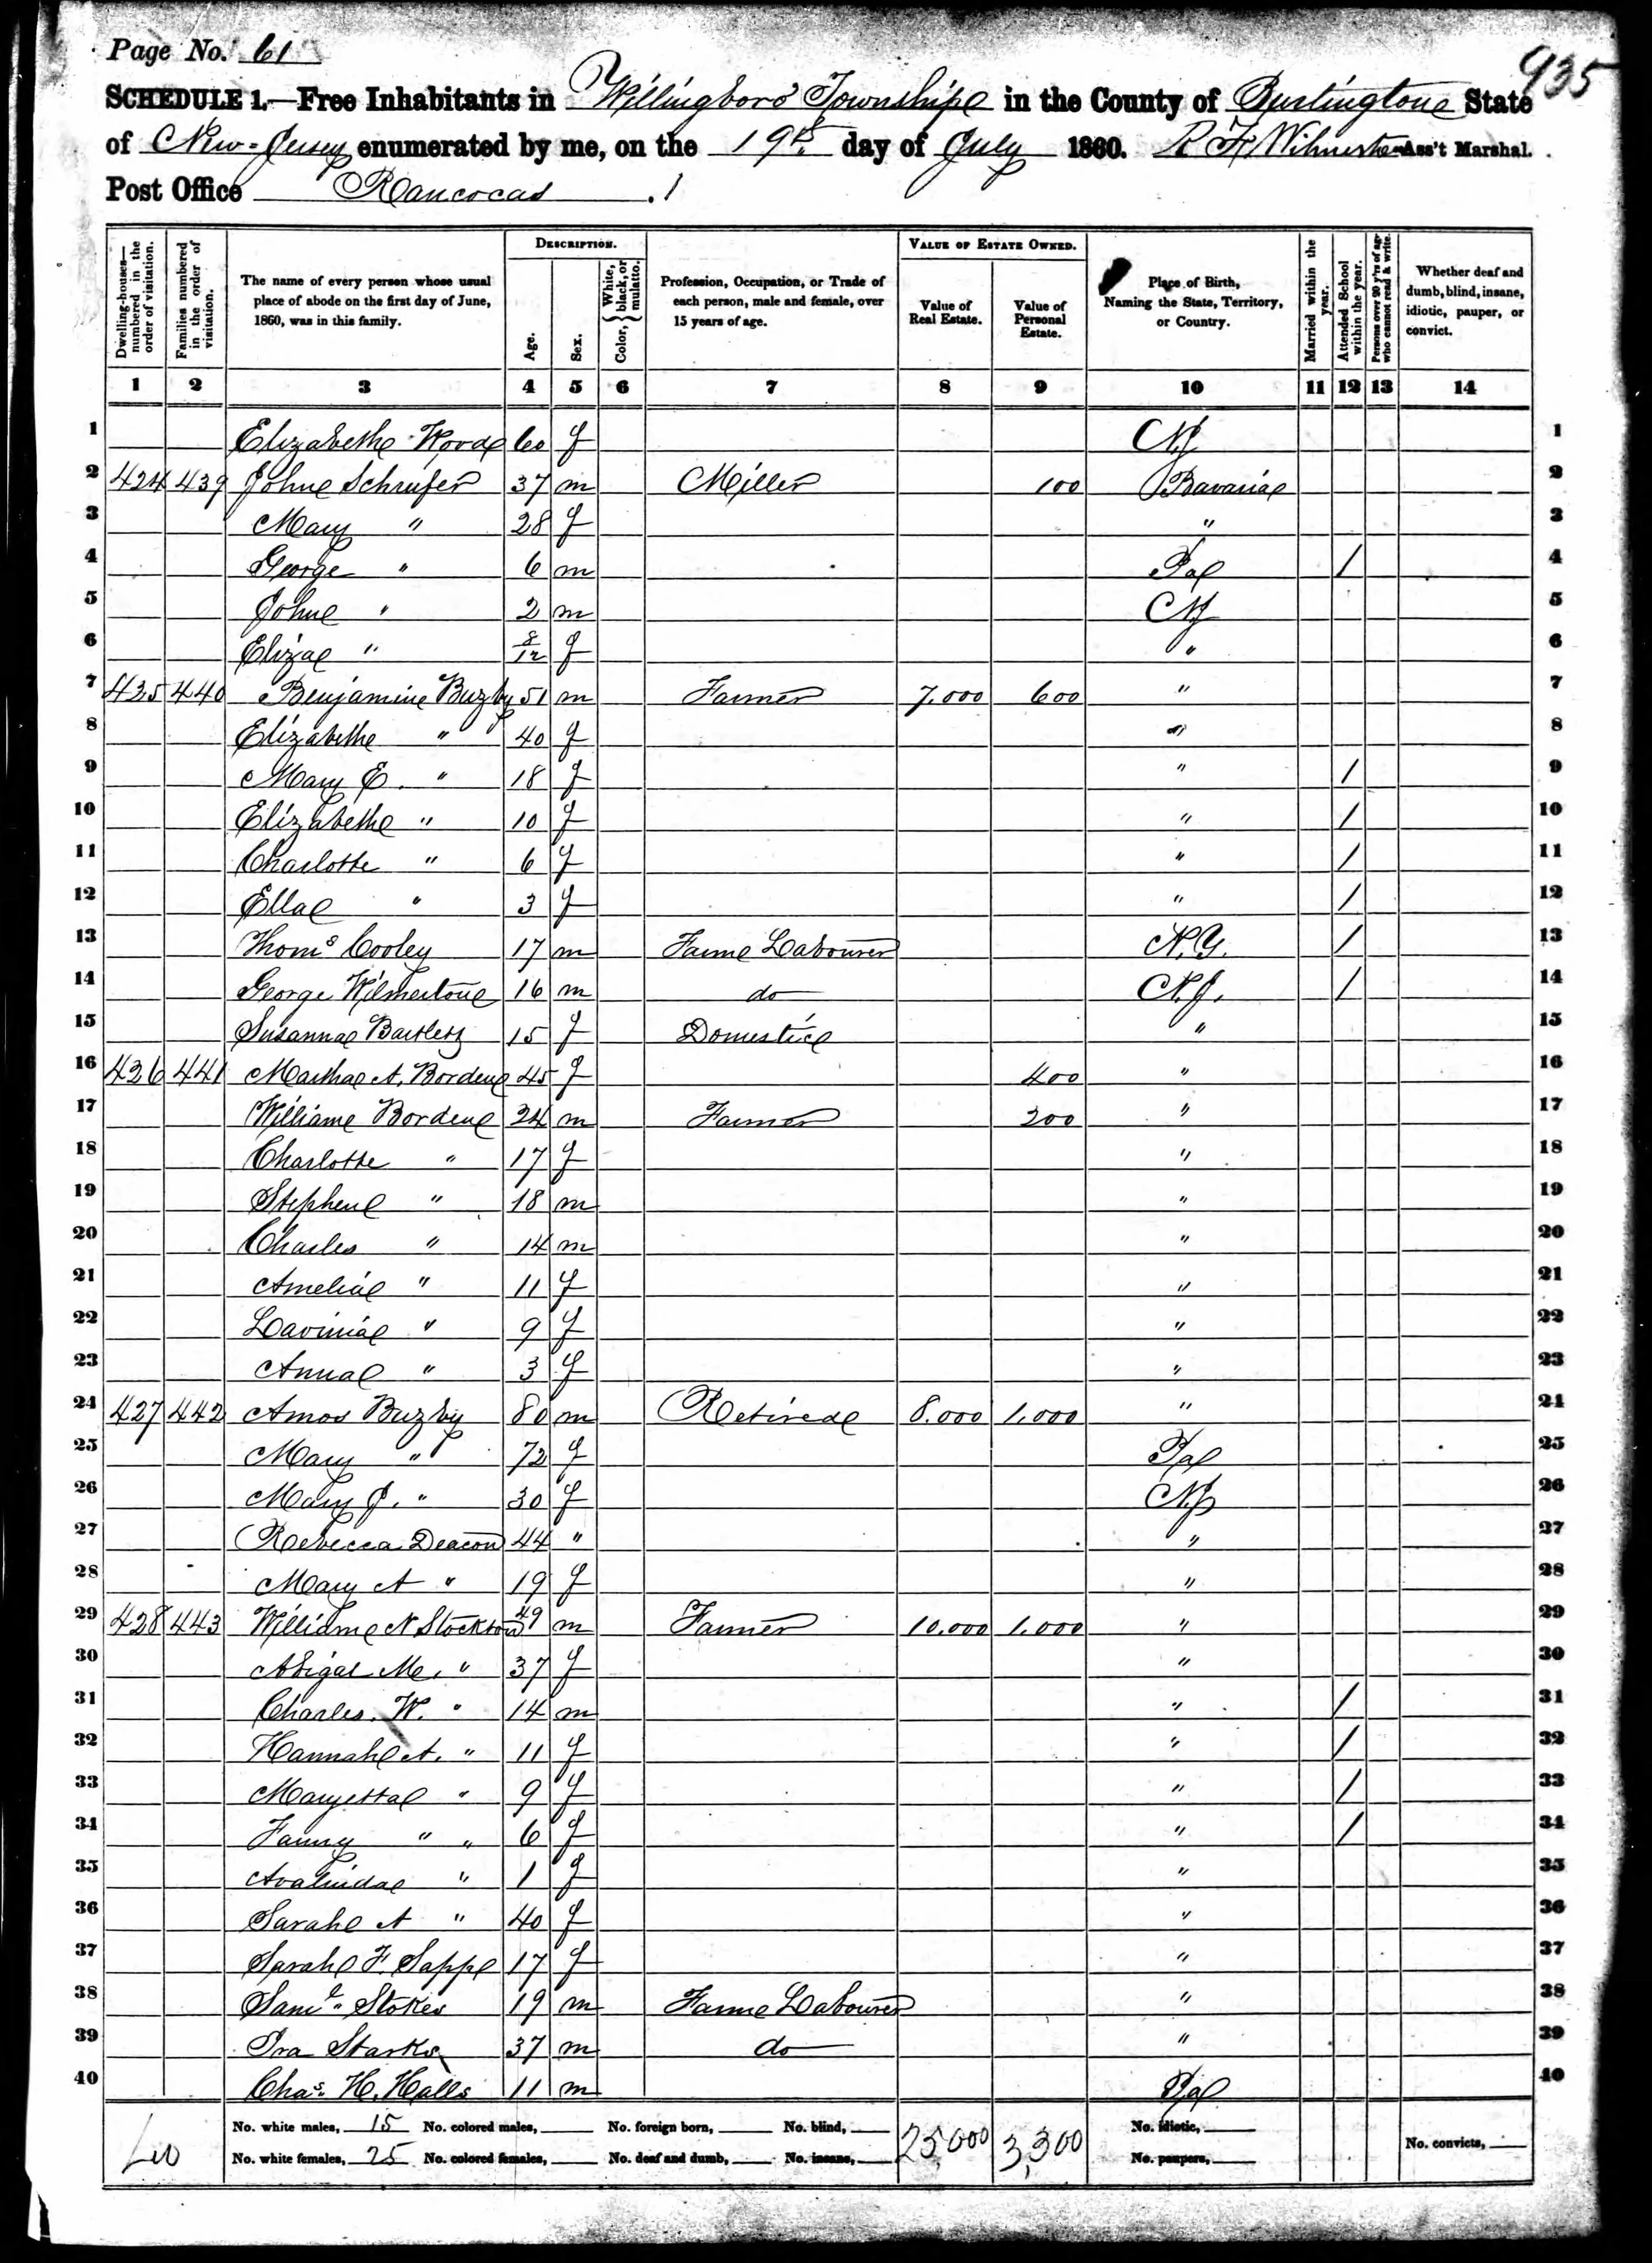 Page No. 61
935
SCHEDULE 1.—Free Inhabitants in Willingboro' Township in the County of Burlington State
of New-Jersey enumerated by me, on the 19th day of July 1860. R F Wilmerton Ass't Marshal.
Post Office Rancocas
Dwelling-houses—numbered in the order of visitation.
Families numbered in the order of visitation.
The name of every person whose usual place of abode on the first day of June, 1860, was in this family.
DESCRIPTION.
Age.
Sex.
Color, { White, black, or mulatto.
Profession, Occupation, or Trade of each person, male and female, over 15 years of age.
VALUE OF ESTATE OWNED.
Value of Real Estate.
Value of Personal Estate.
Place of Birth, Naming the State, Territory, or Country.
Married within the year.
Attended School within the year.
Persons over 20 y'rs of age who cannot read & write.
Whether deaf and dumb, blind, insane, idiotic, pauper, or convict.
1 2 3 4 5 6 7 8 9 10 11 12 13 14
1 Elizabeth Wood 60 f NJ 1
2 424 439 John Schrufer 37 m Miller 100 Bavaria 2
3 Mary " 28 f " 3
4 George " 6 m Pa / 4
5 John " 2 m NJ 5
6 Eliza " 8/12 f " 6
7 425 440 Benjamin Buzby 51 m Farmer 7.000 600 " 7
8 Elizabeth " 40 f " 8
9 Mary E. " 18 f " / 9
10 Elizabeth " 10 f " / 10
11 Charlotte " 6 f " / 11
12 Ella " 3 f " / 12
13 Thoms Cooley 17 m Farm Labourer N.Y. / 13
14 George Wilmerton 16 m do N.J. / 14
15 Susanna 15 f Domestic " 15
16 426 441 Martha A. Borden 45 f 400 " 16
17 William Borden 24 m Farmer 200 " 17
18 Charlotte " 17 f " 18
19 Stephen " 18 m " 19
20 Charles " 14 m " 20
21 Amelia " 11 f " 21
22 Lavinia " 9 f " 22
23 Anna " 3 f " 23
24 427 442 Amos Buzby 80 m Retired 8.000 1.000 " 24
25 Mary " 72 f Pa 25
26 Mary J. " 30 f NJ 26
27 Rebecca Deacon 44 " " 27
28 Mary A " 19 f " 28
29 428 443 William N Stockton 49 m Farmer 10.000 1.000 " 29
30 Abigal M. " 37 f " 30
31 Charles. W. " 14 m " / 31
32 Hannah A. " 11 f " / 32
33 Maryetta " 9 f " / 33
34 Fanny " " 6 f " / 34
35 Avalinda " 1 f " 35
36 Sarah A " 40 f " 36
37 Sarah F. Sapp 17 f " 37
38 Saml. Stokes 19 m Farm Labourer " 38
39 Ira Starks 37 m do " 39
40 Chas. H. Halls 11 m Pa 40
No. white males, 15 No. colored males, No. foreign born, No. blind, 25,000 3,300 No. idiotic,
No. white females, 25 No. colored females, No. deaf and dumb, No. insane, No. paupers, No. convicts,